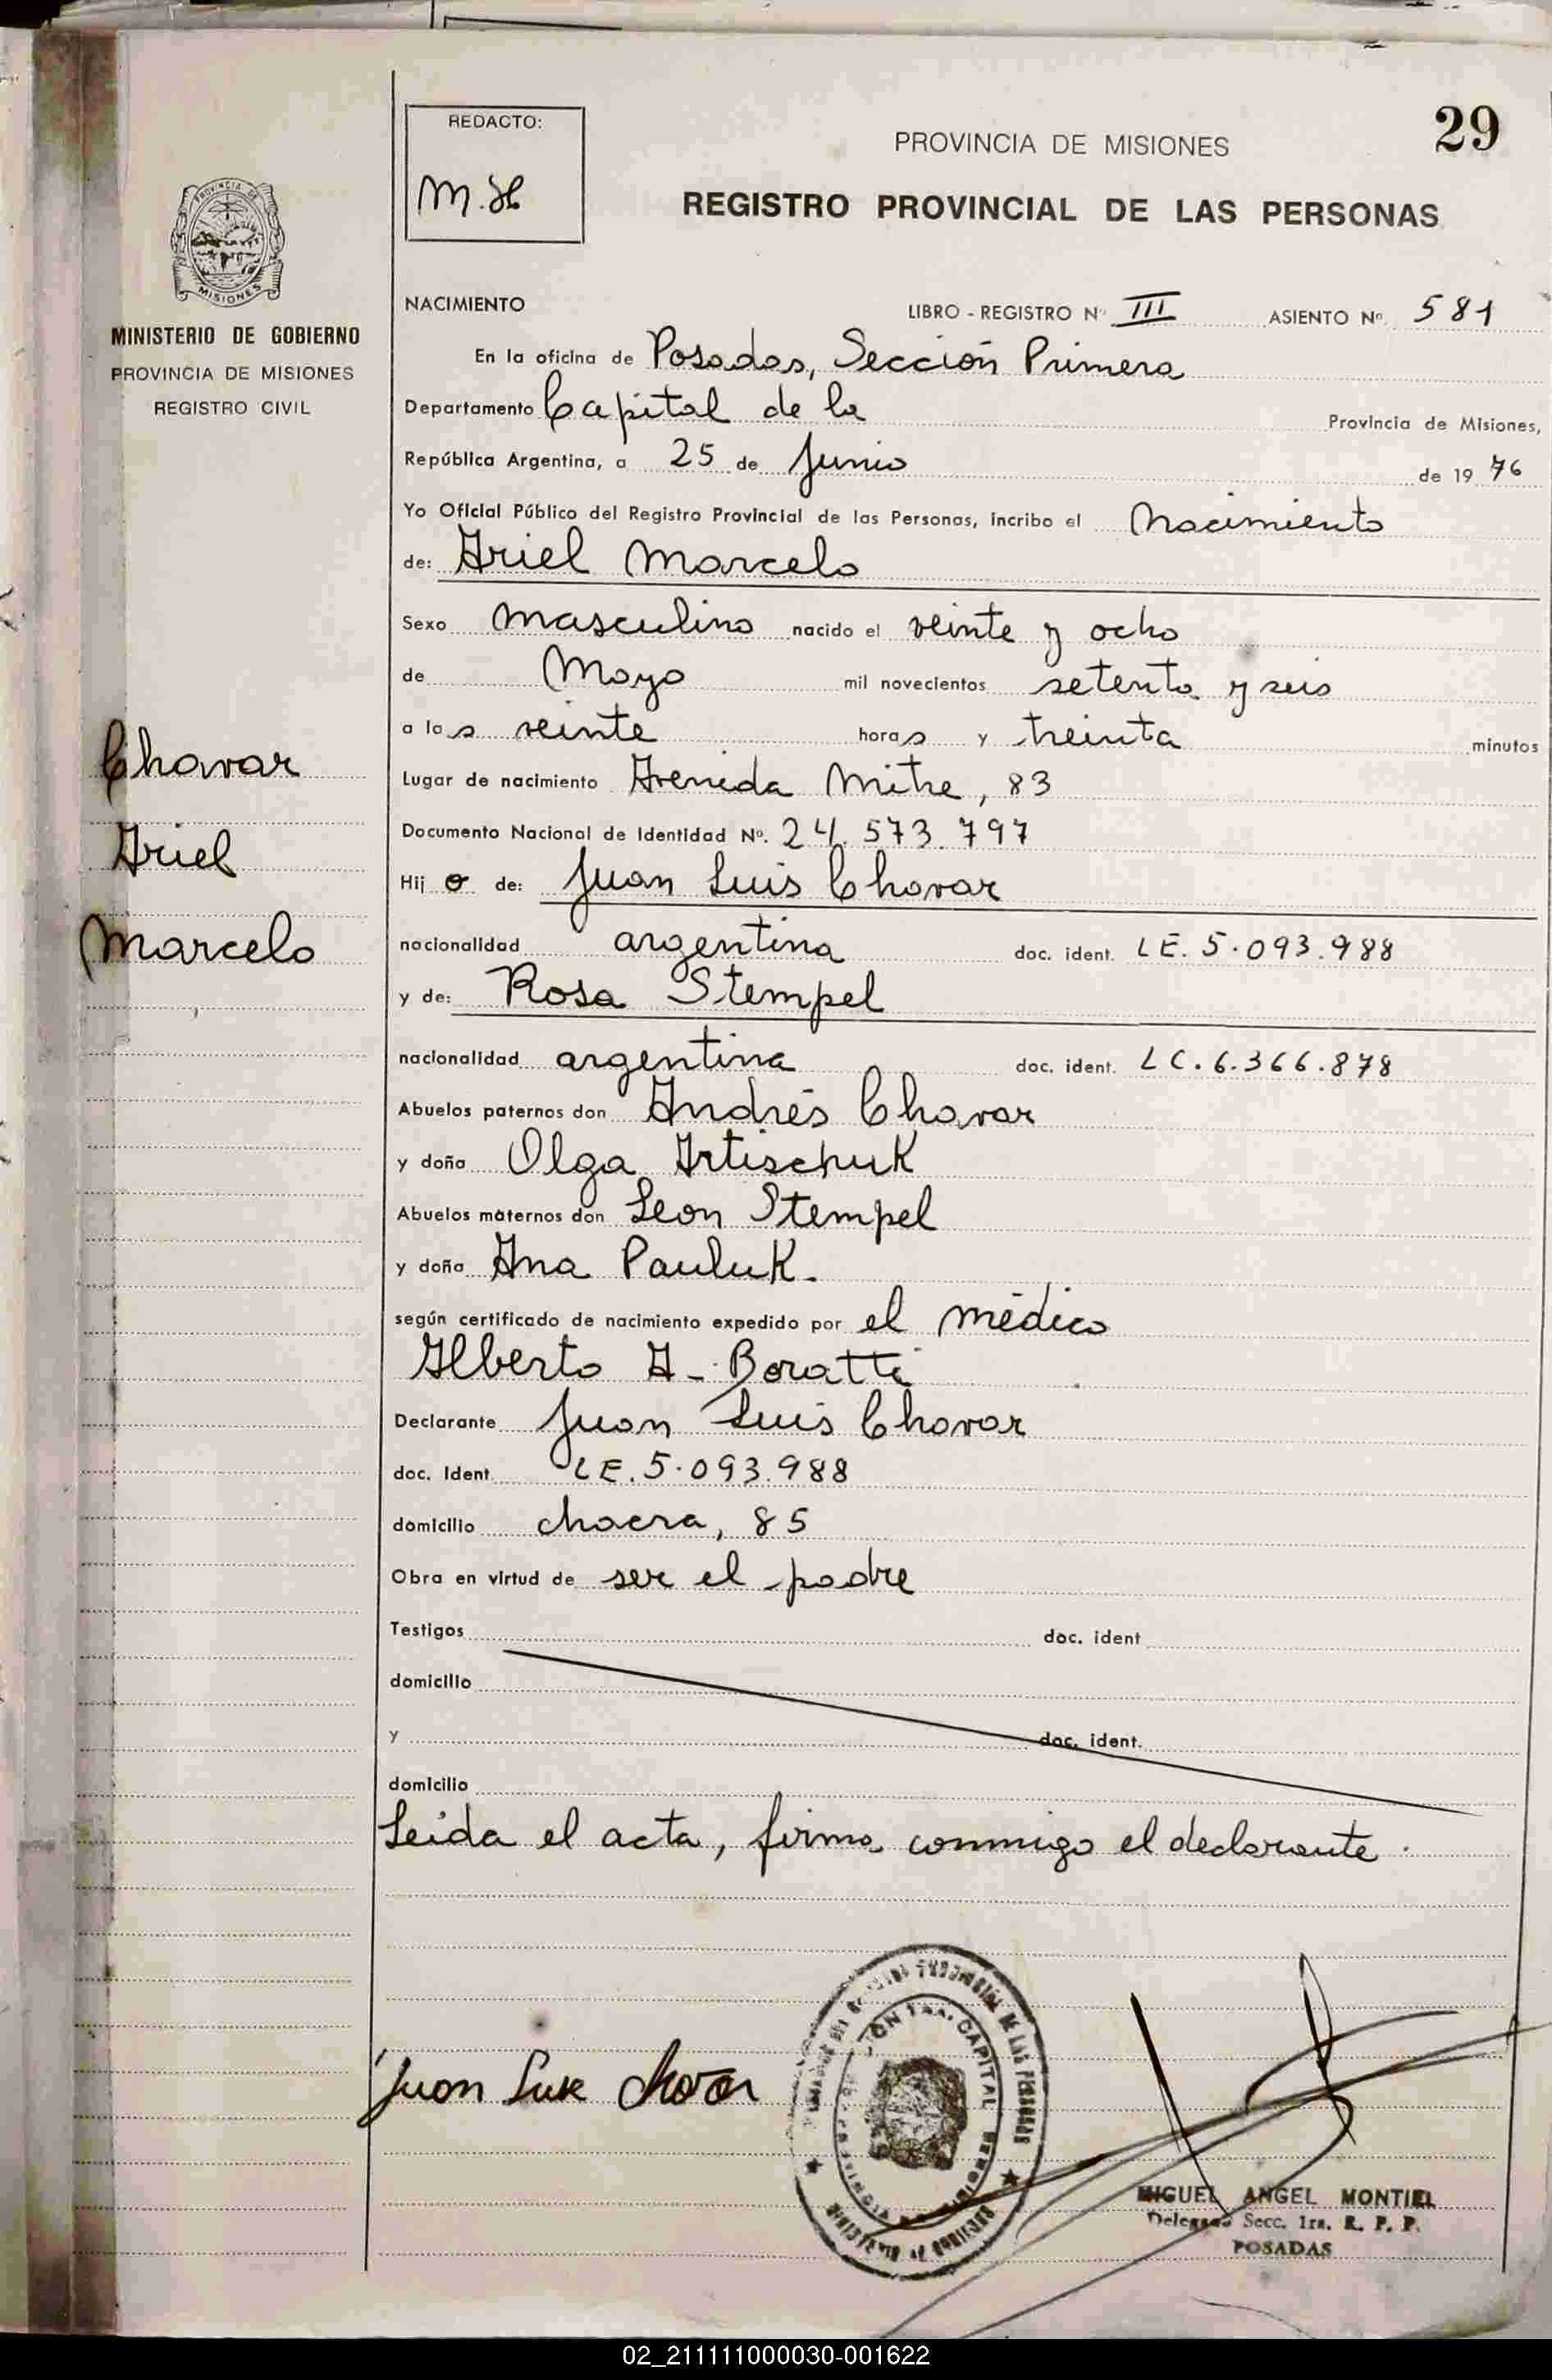 29
REDACTO:
M.H
PROVINCIA DE MISIONES
REGISTRO PROVINCIAL DE LAS PERSONAS
PROVINCIA DE
MISIONES
MINISTERIO DE GOBIERNO
PROVINCIA DE MISIONES
REGISTRO CIVIL
Chavar
Ariel
Marcelo
NACIMIENTO LIBRO - REGISTRO Nº III ASIENTO Nº 581
En la oficina de Posadas, Sección Primera
Departamento Capital de la Provincia de Misiones,
República Argentina, a 25 de Junio de 1976
Yo Oficial Público del Registro Provincial de las Personas, incribo el Nacimiento
de: Ariel Marcelo
Sexo masculino nacido el veinte y ocho
de Mayo mil novecientos setenta y seis
a las veinte horas y treinta minutos
Lugar de nacimiento Avenida Mitre, 83
Documento Nacional de Identidad Nº. 24.573.797
Hijo de: Juan Luis Chavar
nacionalidad argentina doc. ident. LE. 5.093.988
y de: Rosa Stempel
nacionalidad argentina doc. ident. LC. 6.366.878
Abuelos paternos don Andrés Chavar
y doña Olga Artischuk
Abuelos maternos don Leon Stempel
y doña Ana Pauluk.
según certificado de nacimiento expedido por el médico
Alberto A. Boratti
Declarante Juan Luis Chavar
doc. Ident. LE. 5.093.988
domicilio chacra, 85
Obra en virtud de ser el padre
Testigos doc. ident
domicilio
y doc. ident.
domicilio
Leida el acta, firma conmigo el declarante.
Juan Luis Chavar
CAPITAL
MIGUEL ANGEL MONTIEL
Delegado Secc. 1ra. R. P. P.
POSADAS
02_211111000030-001622